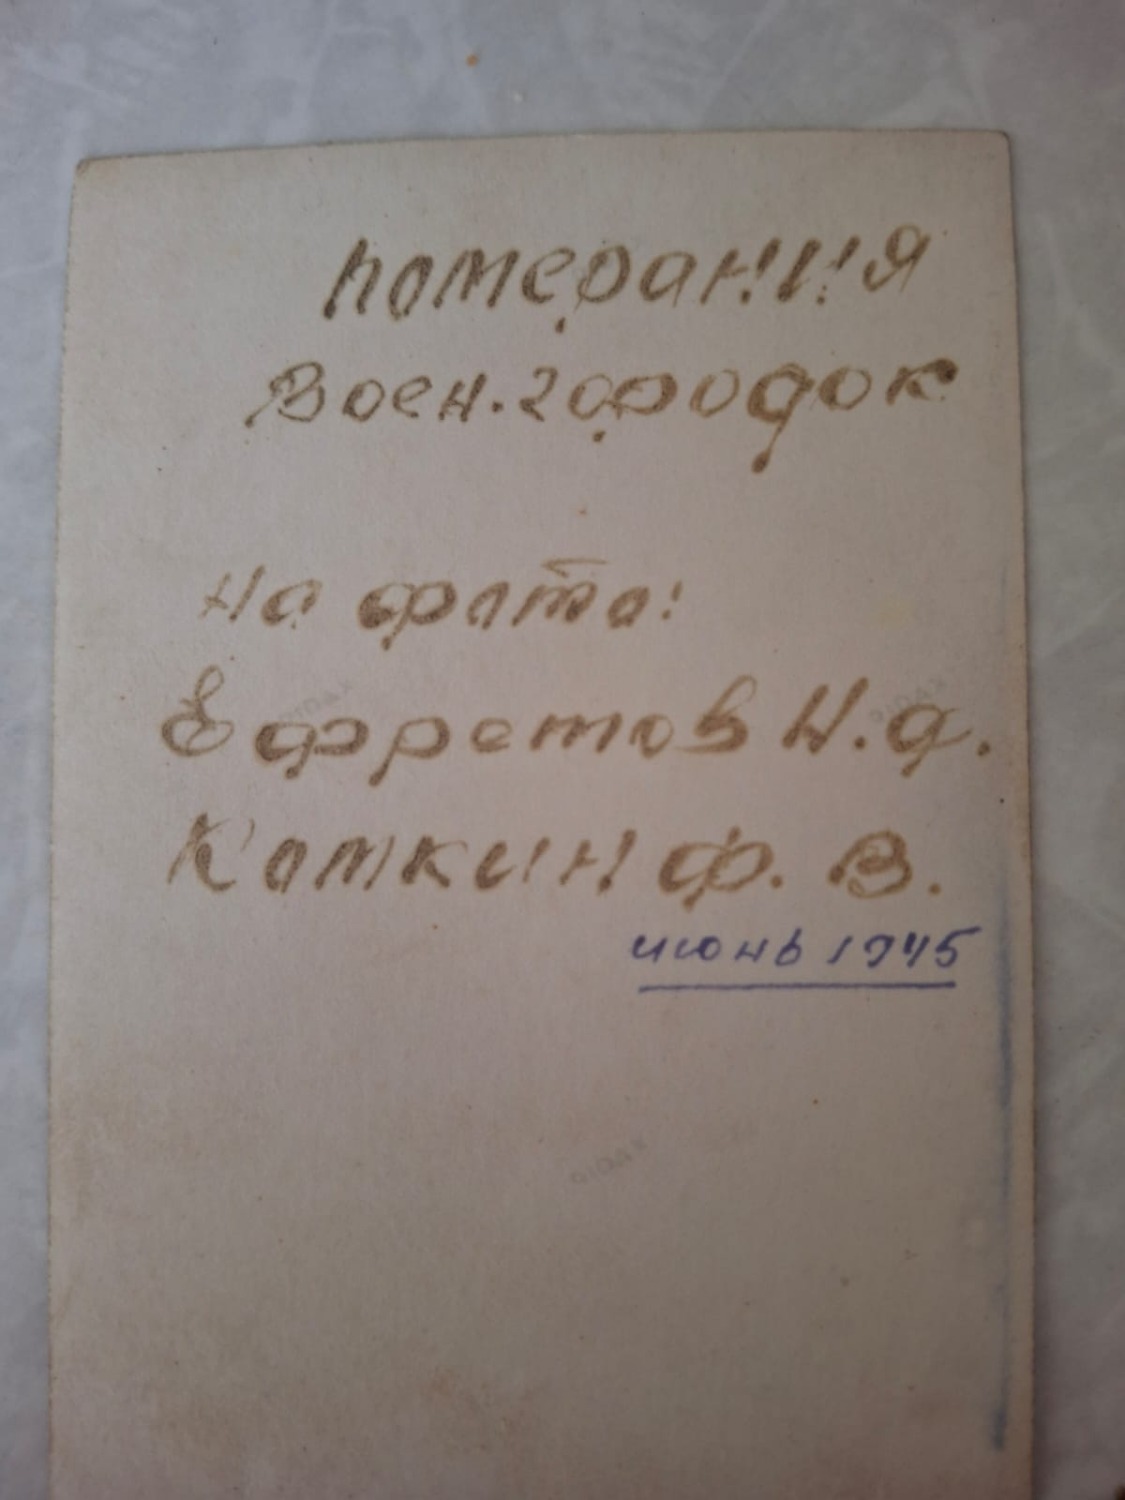 Померания
Воен. городок
На фото:
Ефретов Н. Д.
Коткин Ф. В.
июнь 1945